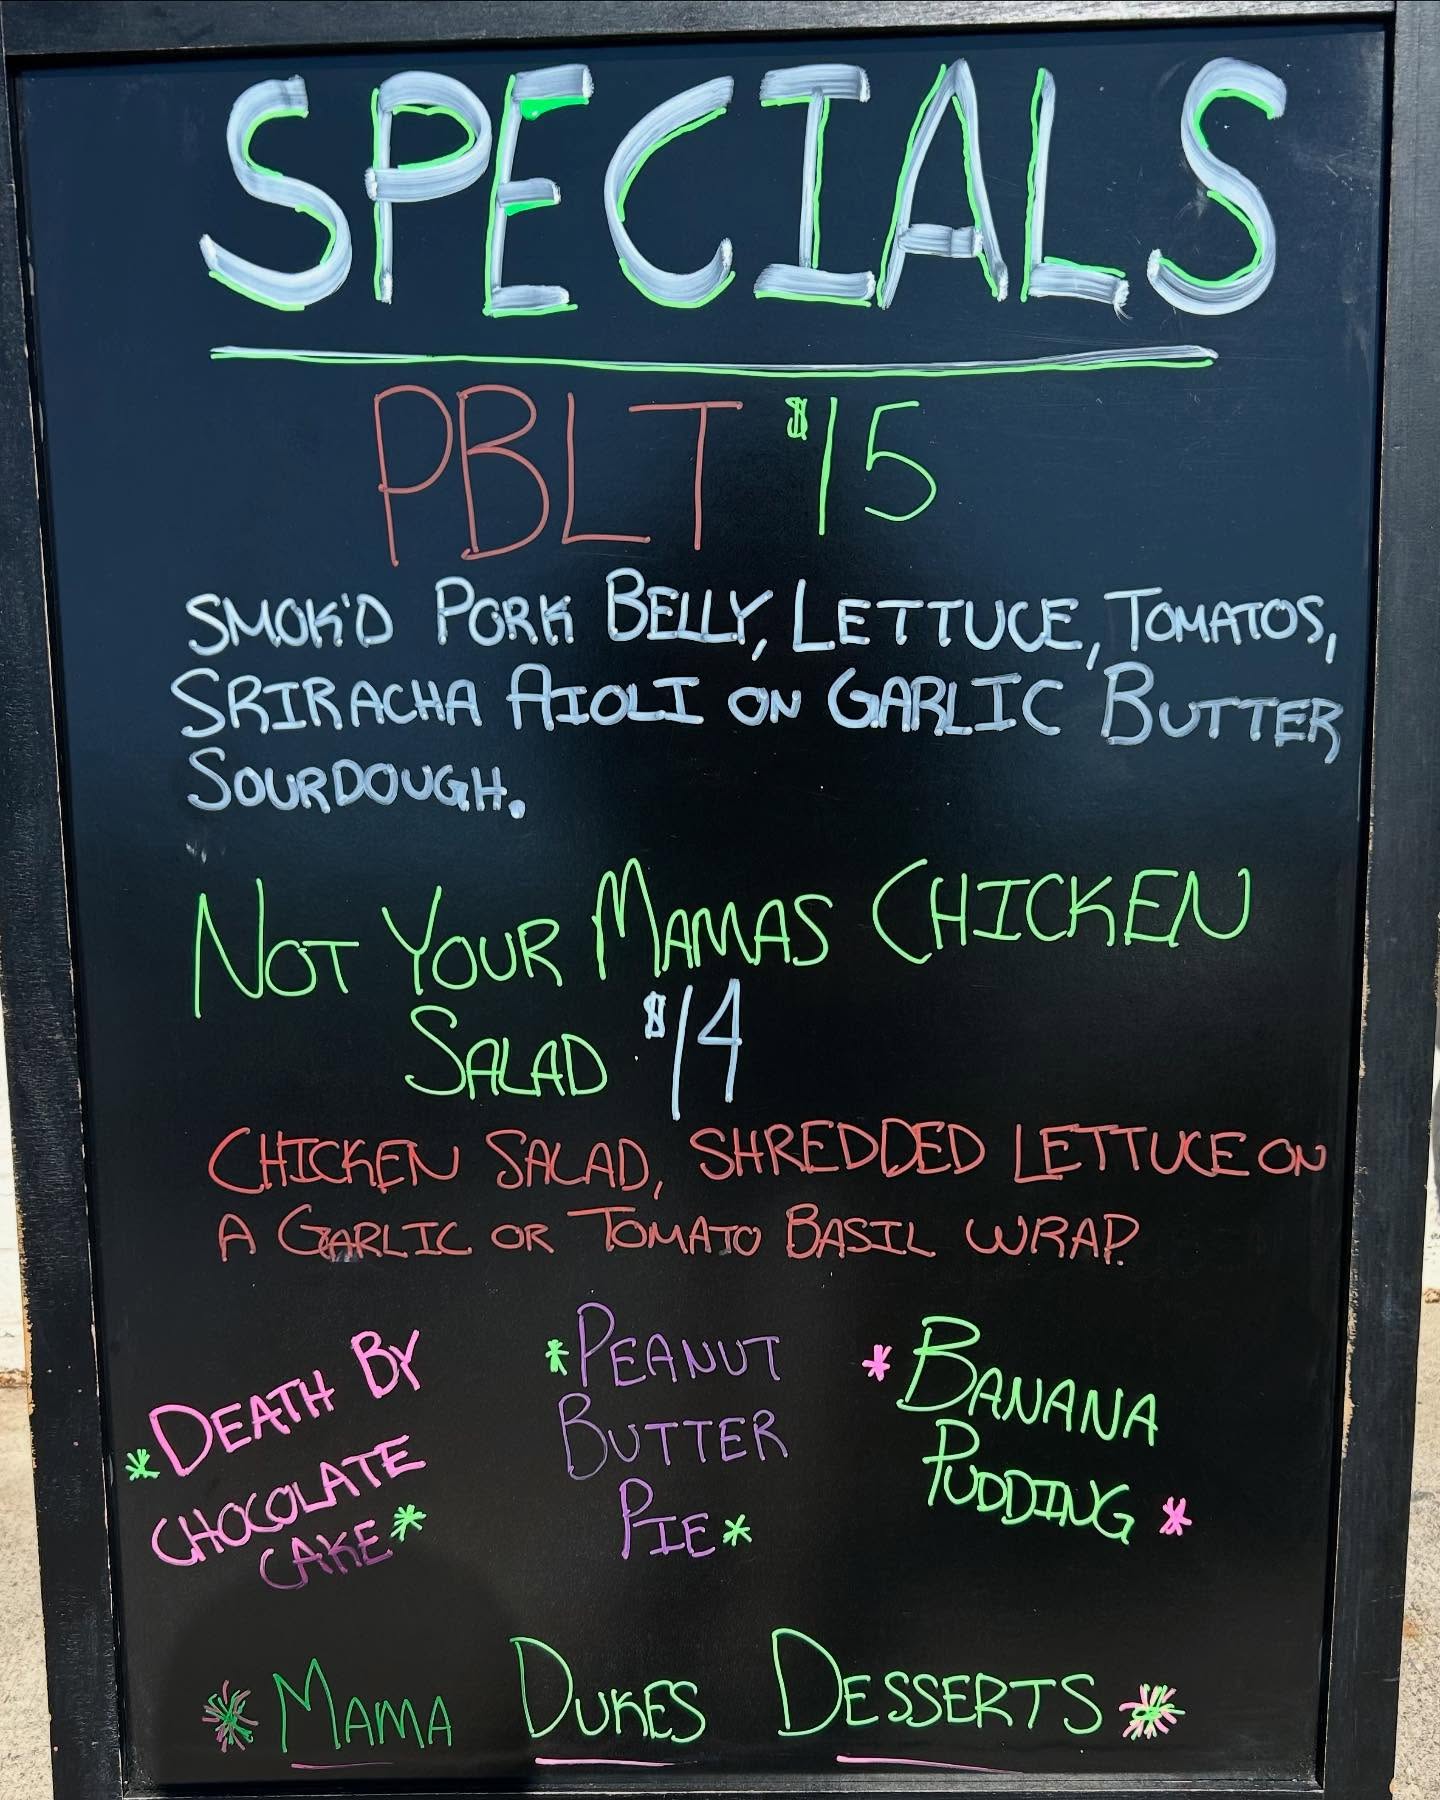 SPECIALS
PBLT $15
SMOK'D PORK BELLY, LETTUCE, TOMATOS,
SRIRACHA AIOLI ON GARLIC BUTTER
SOURDOUGH.
NOT YOUR MAMAS CHICKEN
SALAD $14
CHICKEN SALAD, SHREDDED LETTUCE ON
A GARLIC OR TOMATO BASIL WRAP.
*DEATH BY
CHOCOLATE
CAKE*
*PEANUT
BUTTER
PIE*
*BANANA
PUDDING*
*MAMA DUKES DESSERTS*